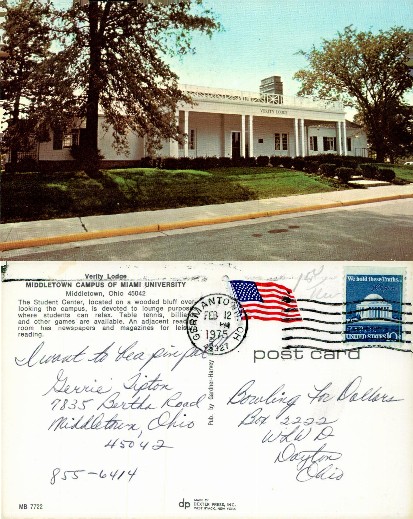 VERITY LODGE
Verity Lodge
MIDDLETOWN CAMPUS OF MIAMI UNIVERSITY
Middletown, Ohio 45042
The Student Center, located on a wooded bluff over-
looking the campus, is devoted to lounge purpo
where students can relax. Table tennis, billia
and other games are available. An adjacent rea
room has newspapers and magazines for leis
reading.
GERMANTOWN
OH
FEB 12
PM
1975
45327
We hold these Truths..
10
post card
I want to be a pin pal
Gerrie Lipton
7835 Bertha Road
Middletown, Ohio
45042
855-6414
Bowling For Dollars
Box 2222
WLWD
Dayton
Ohio
Pub. by Gardner Harvey
MB 7722
dp
MADE BY
DEXTER PRESS, INC.
WEST NYACK, NEW YORK